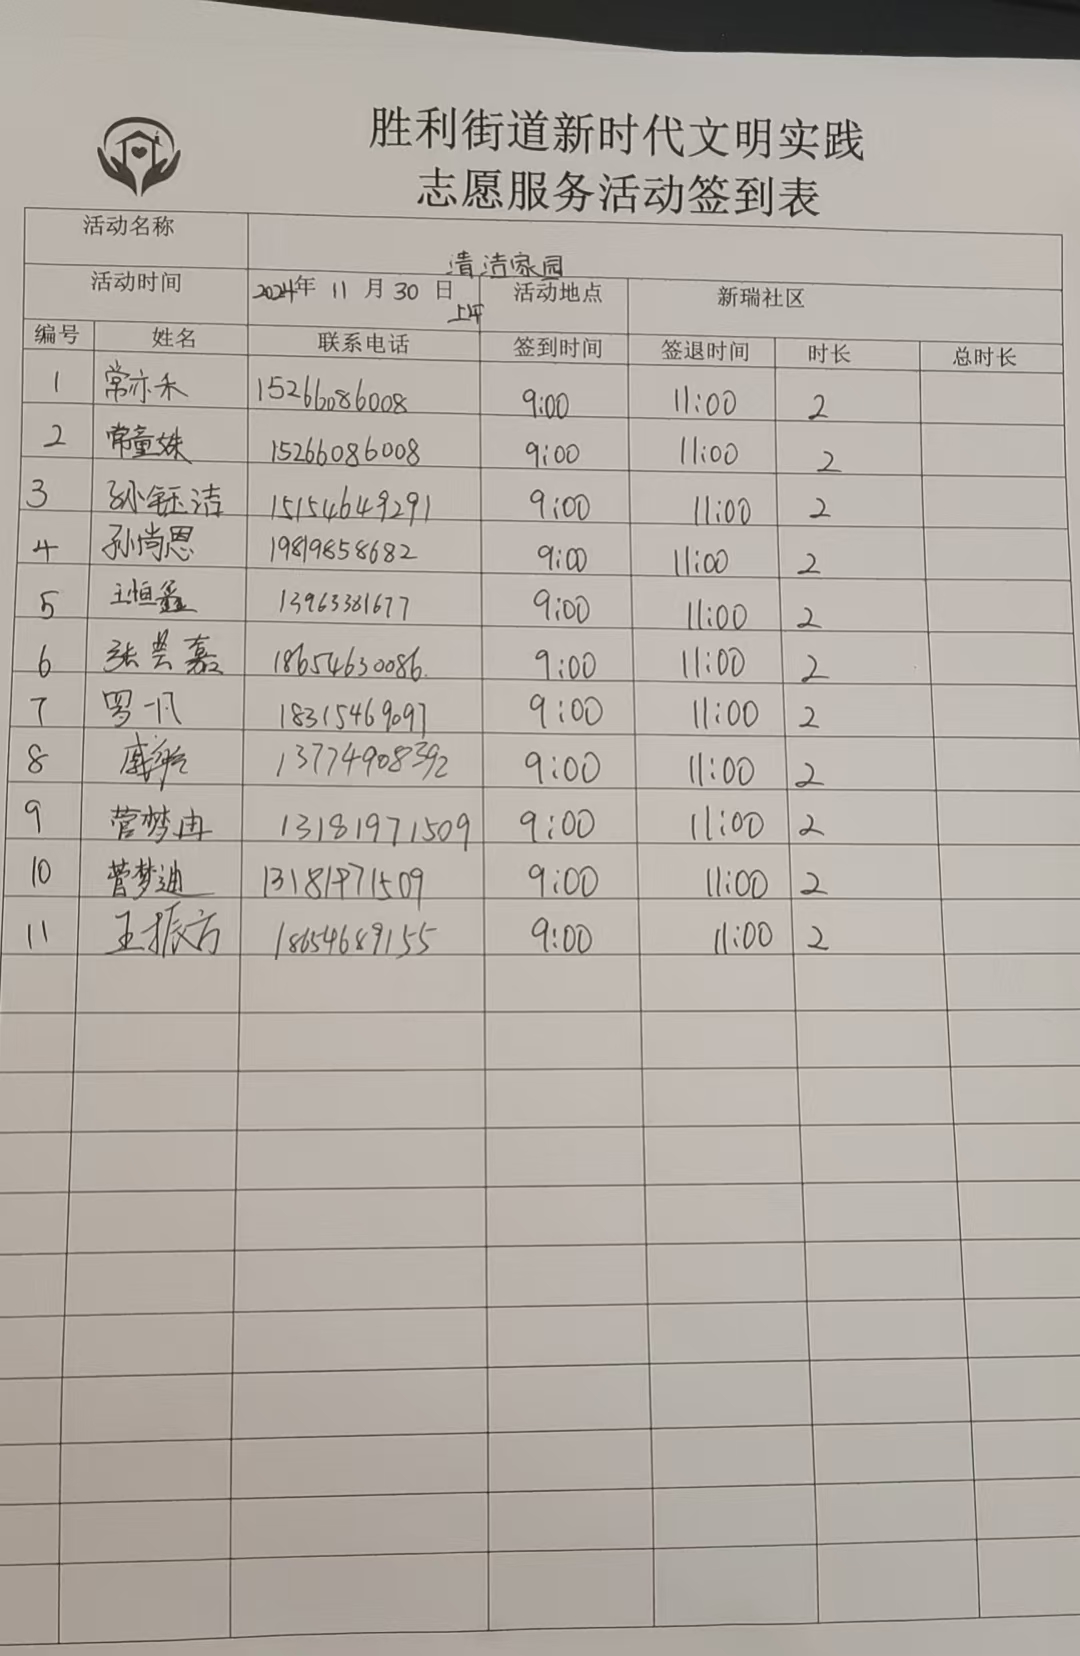 胜利街道新时代文明实践
志愿服务活动签到表
活动名称 清洁家园
活动时间 2024年 11 月 30 日 上午 活动地点 新瑞社区
编号 姓名 联系电话 签到时间 签退时间 时长 总时长
1 常亦禾 15266086008 9:00 11:00 2
2 常童姝 15266086008 9:00 11:00 2
3 孙钰洁 15154649291 9:00 11:00 2
4 孙尚恩 19819858682 9:00 11:00 2
5 王恒鑫 13963381677 9:00 11:00 2
6 张芸嘉 18654630086 9:00 11:00 2
7 罗一凡 18315469097 9:00 11:00 2
8 13774908392 9:00 11:00 2
9 菅梦冉 13181971509 9:00 11:00 2
10 菅梦迪 13181971509 9:00 11:00 2
11 王振方 18654689155 9:00 11:00 2